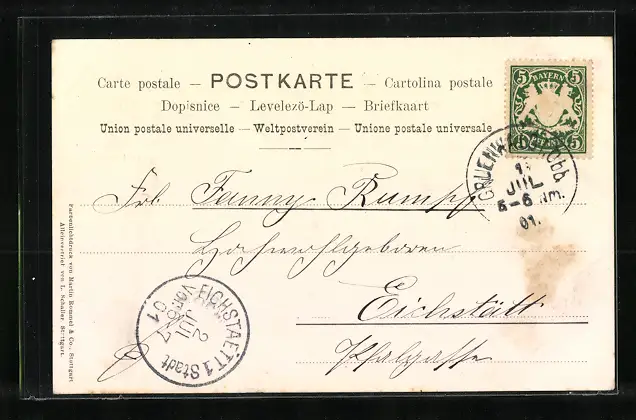 Carte postale — POSTKARTE — Cartolina postale
Dopisnice — Levelezö-Lap — Briefkaart
Union postale universelle — Weltpostverein — Unione postale universale
BAYERN
5 5
5 PFENNIG 5
JUL
5-6 Nm.
01.
Frl. Fanny Rumpf
Hochwohlgeboren
Eichstätt
Pfalgasse
EICHSTAETT 1 Stadt
2
JUL
01
Farbenlichtdruck von Martin Rommel & Co., Stuttgart
Alleinvertrieb von L. Schaller, Stuttgart.